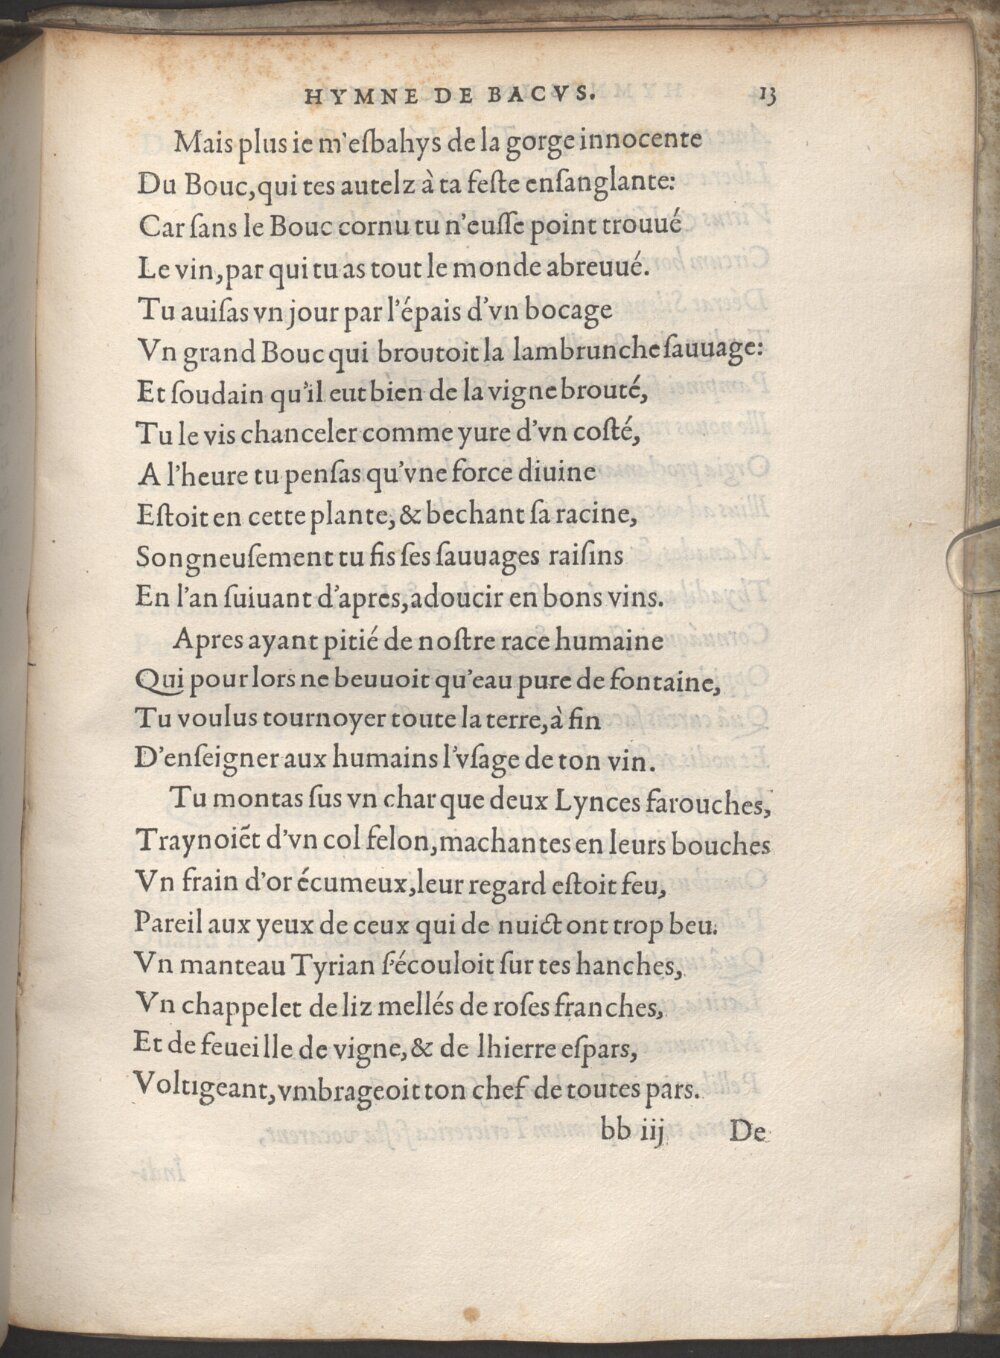 HYMNE DE BACVS. 13
Mais plus ie m'eſbahys de la gorge innocente
Du Bouc, qui tes autelz à ta feſte enſanglante:
Car ſans le Bouc cornu tu n'euſſe point trouué
Le vin, par qui tu as tout le monde abreuué.
Tu auiſas vn jour par l'épais d'vn bocage
Vn grand Bouc qui broutoit la lambrunche ſauuage:
Et ſoudain qu'il eut bien de la vigne brouté,
Tu le vis chanceler comme yure d'vn coſté,
A l'heure tu penſas qu'vne force diuine
Eſtoit en cette plante, & bechant ſa racine,
Songneuſement tu fis ſes ſauuages raiſins
En l'an ſuiuant d'apres, adoucir en bons vins.
Apres ayant pitié de noſtre race humaine
Qui pour lors ne beuuoit qu'eau pure de fontaine,
Tu voulus tournoyer toute la terre, à fin
D'enſeigner aux humains l'vſage de ton vin.
Tu montas ſus vn char que deux Lynces farouches,
Traynoiẽt d'vn col felon, machantes en leurs bouches
Vn frain d'or écumeux, leur regard eſtoit feu,
Pareil aux yeux de ceux qui de nuict ont trop beu.
Vn manteau Tyrian ſ'écouloit ſur tes hanches,
Vn chappelet de liz mellés de roſes franches,
Et de feueille de vigne, & de lhierre eſpars,
Voltigeant, vmbrageoit ton chef de toutes pars.
bb iij De